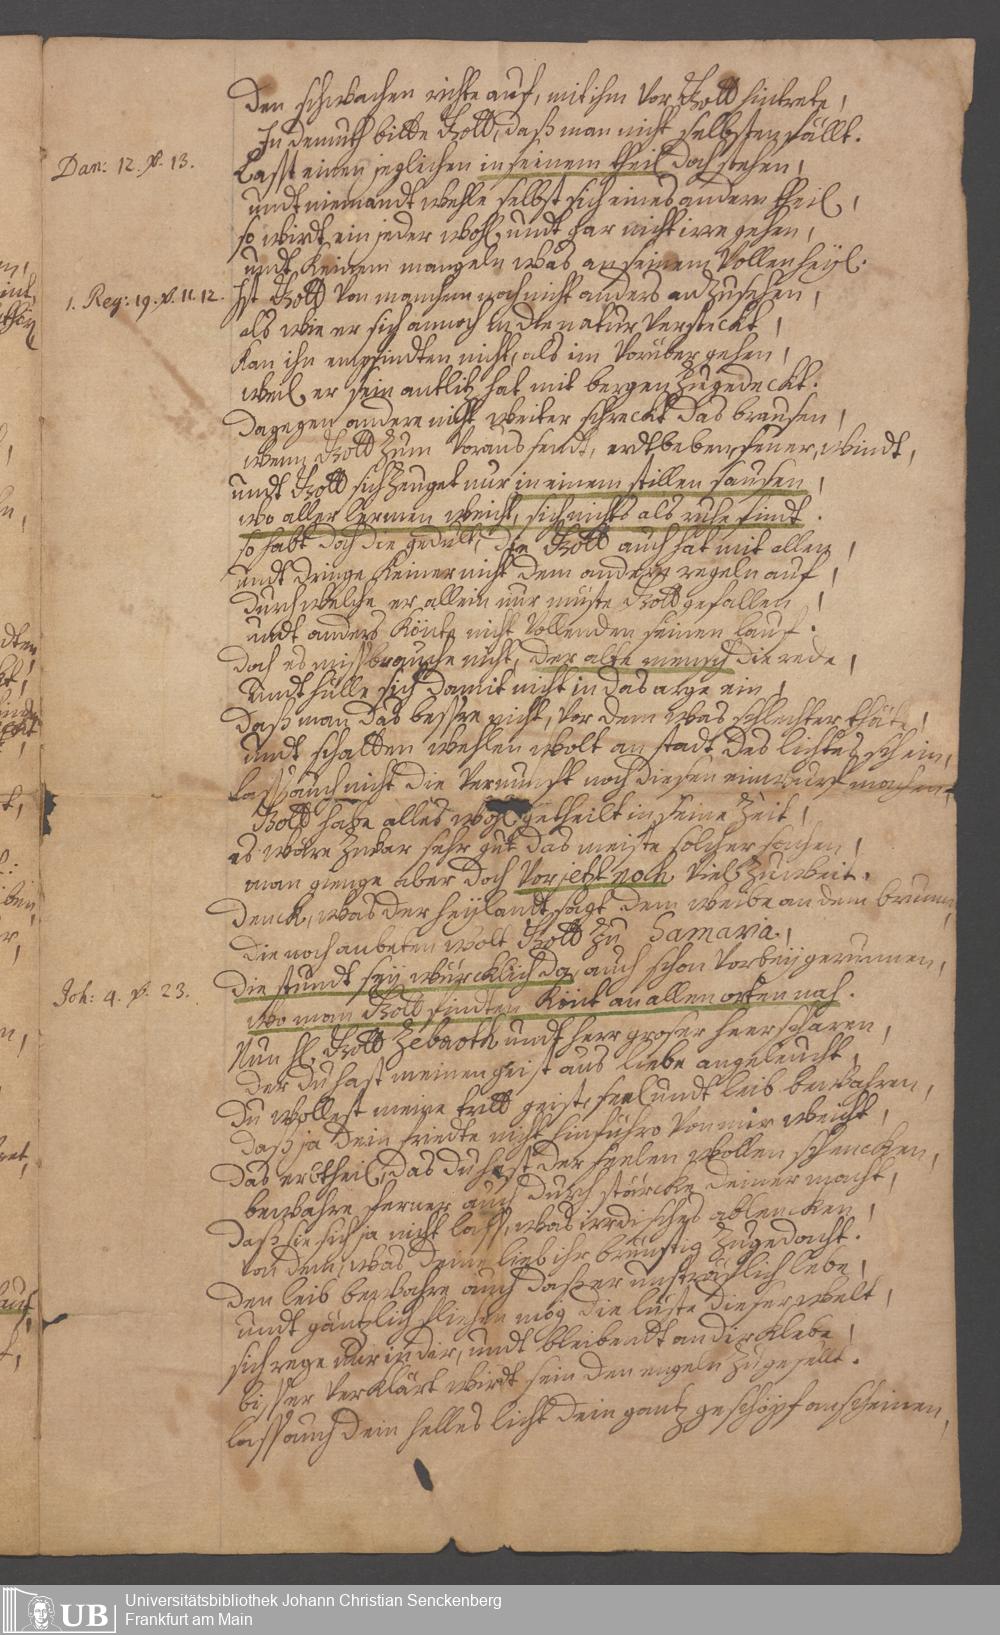 Den schwachen richte auf, mit ihm vor Gott hintrete,
In demuth bitte Gott, daß man nicht selbsten fällt.
Dan: 12. v. 13.
Lasst einen jeglichen in seinem theil doch stehen,
undt niemandt wehle selbst sich eines andern theil,
so wirdt ein jeder wohl, undt gar nicht irre gehen,
undt Keinem mangeln was an seinem Vollen heÿl.
1. Reg: 19. v. 11. 12.
Ist Gott Von manchem noch nicht anders anzusehen,
als wie er sich annoch in die natur Versteckt,
Kan ihn empfindten nicht, als im Vorüber gehen,
weil er sein antlitz hat mit bergen Zugedeckt.
Dagegen andere nicht weiter schreckt das brausen,
wenn Gott Zum Voraus sendt, erdtbeben, feuer, windt,
undt Gott sich Zeuget nur in einem stillen sausen,
wo aller lermen weicht, sich nichts als ruhe findt.
so habt doch die gedult, die Gott auch hat mit allen,
undt dringe Keiner nicht dem andern regeln auf,
durch welche er allein nur müste Gott gefallen,
undt anders Könte nicht Vollenden seinen lauf.
Doch es missbrauche nicht, der alte mensch die rede,
Undt hülle sich damit nicht in das arge ein,
Daß man das bessre nicht, vor dem was schlechter thäte,
undt schatten wehlen wolt an stadt des lichtes schein,
lass auch nicht die Vernunfft noch diesen einwurf machen,
Gott habe alles wohl getheilt in seine Zeit,
es wäre Zwar sehr gut das meiste solcher sachen,
man gienge aber doch Vor jetzt noch Viel Zu weit.
Denck, was der heÿlandt sagt dem weibe an dem brunnen,
die noch anbeten wolt Gott zu Samaria,
Joh: 4. v. 23.
Die stundt seÿ würcklich da, auch schon Vorbeÿ gerunnen,
wo man Gott findten Könt an allen orten nah.
Nun Gott Zebaoth undt herr groser heerscharen,
Der du hast meinen geist aus liebe angeleucht,
Du wollest meine geist, seel undt leib bewahren,
Daß ja dein friedte nicht hinführo Von mir weicht,
Das erbtheil, das du hast der seelen wollen schencken,
bewahre ferner auch durch stärcke deiner macht,
Daß sie sich ja nicht lass, was irrdisches ablencken,
Von dem, was deine lieb ihr brünstig Zugedacht.
Den leib bewahre auch daß er unsträfflich lebe,
undt gäntzlich fliehen mög die lüste dieser welt,
sich rege nur in dir, undt bleibendt an dir Klebe,
biss er Verklärt wirdt sein den engeln Zugesellt.
lass auch dein helles licht dein gantz geschöpf anscheinen,
Universitätsbibliothek Johann Christian Senckenberg
Frankfurt am Main
UB